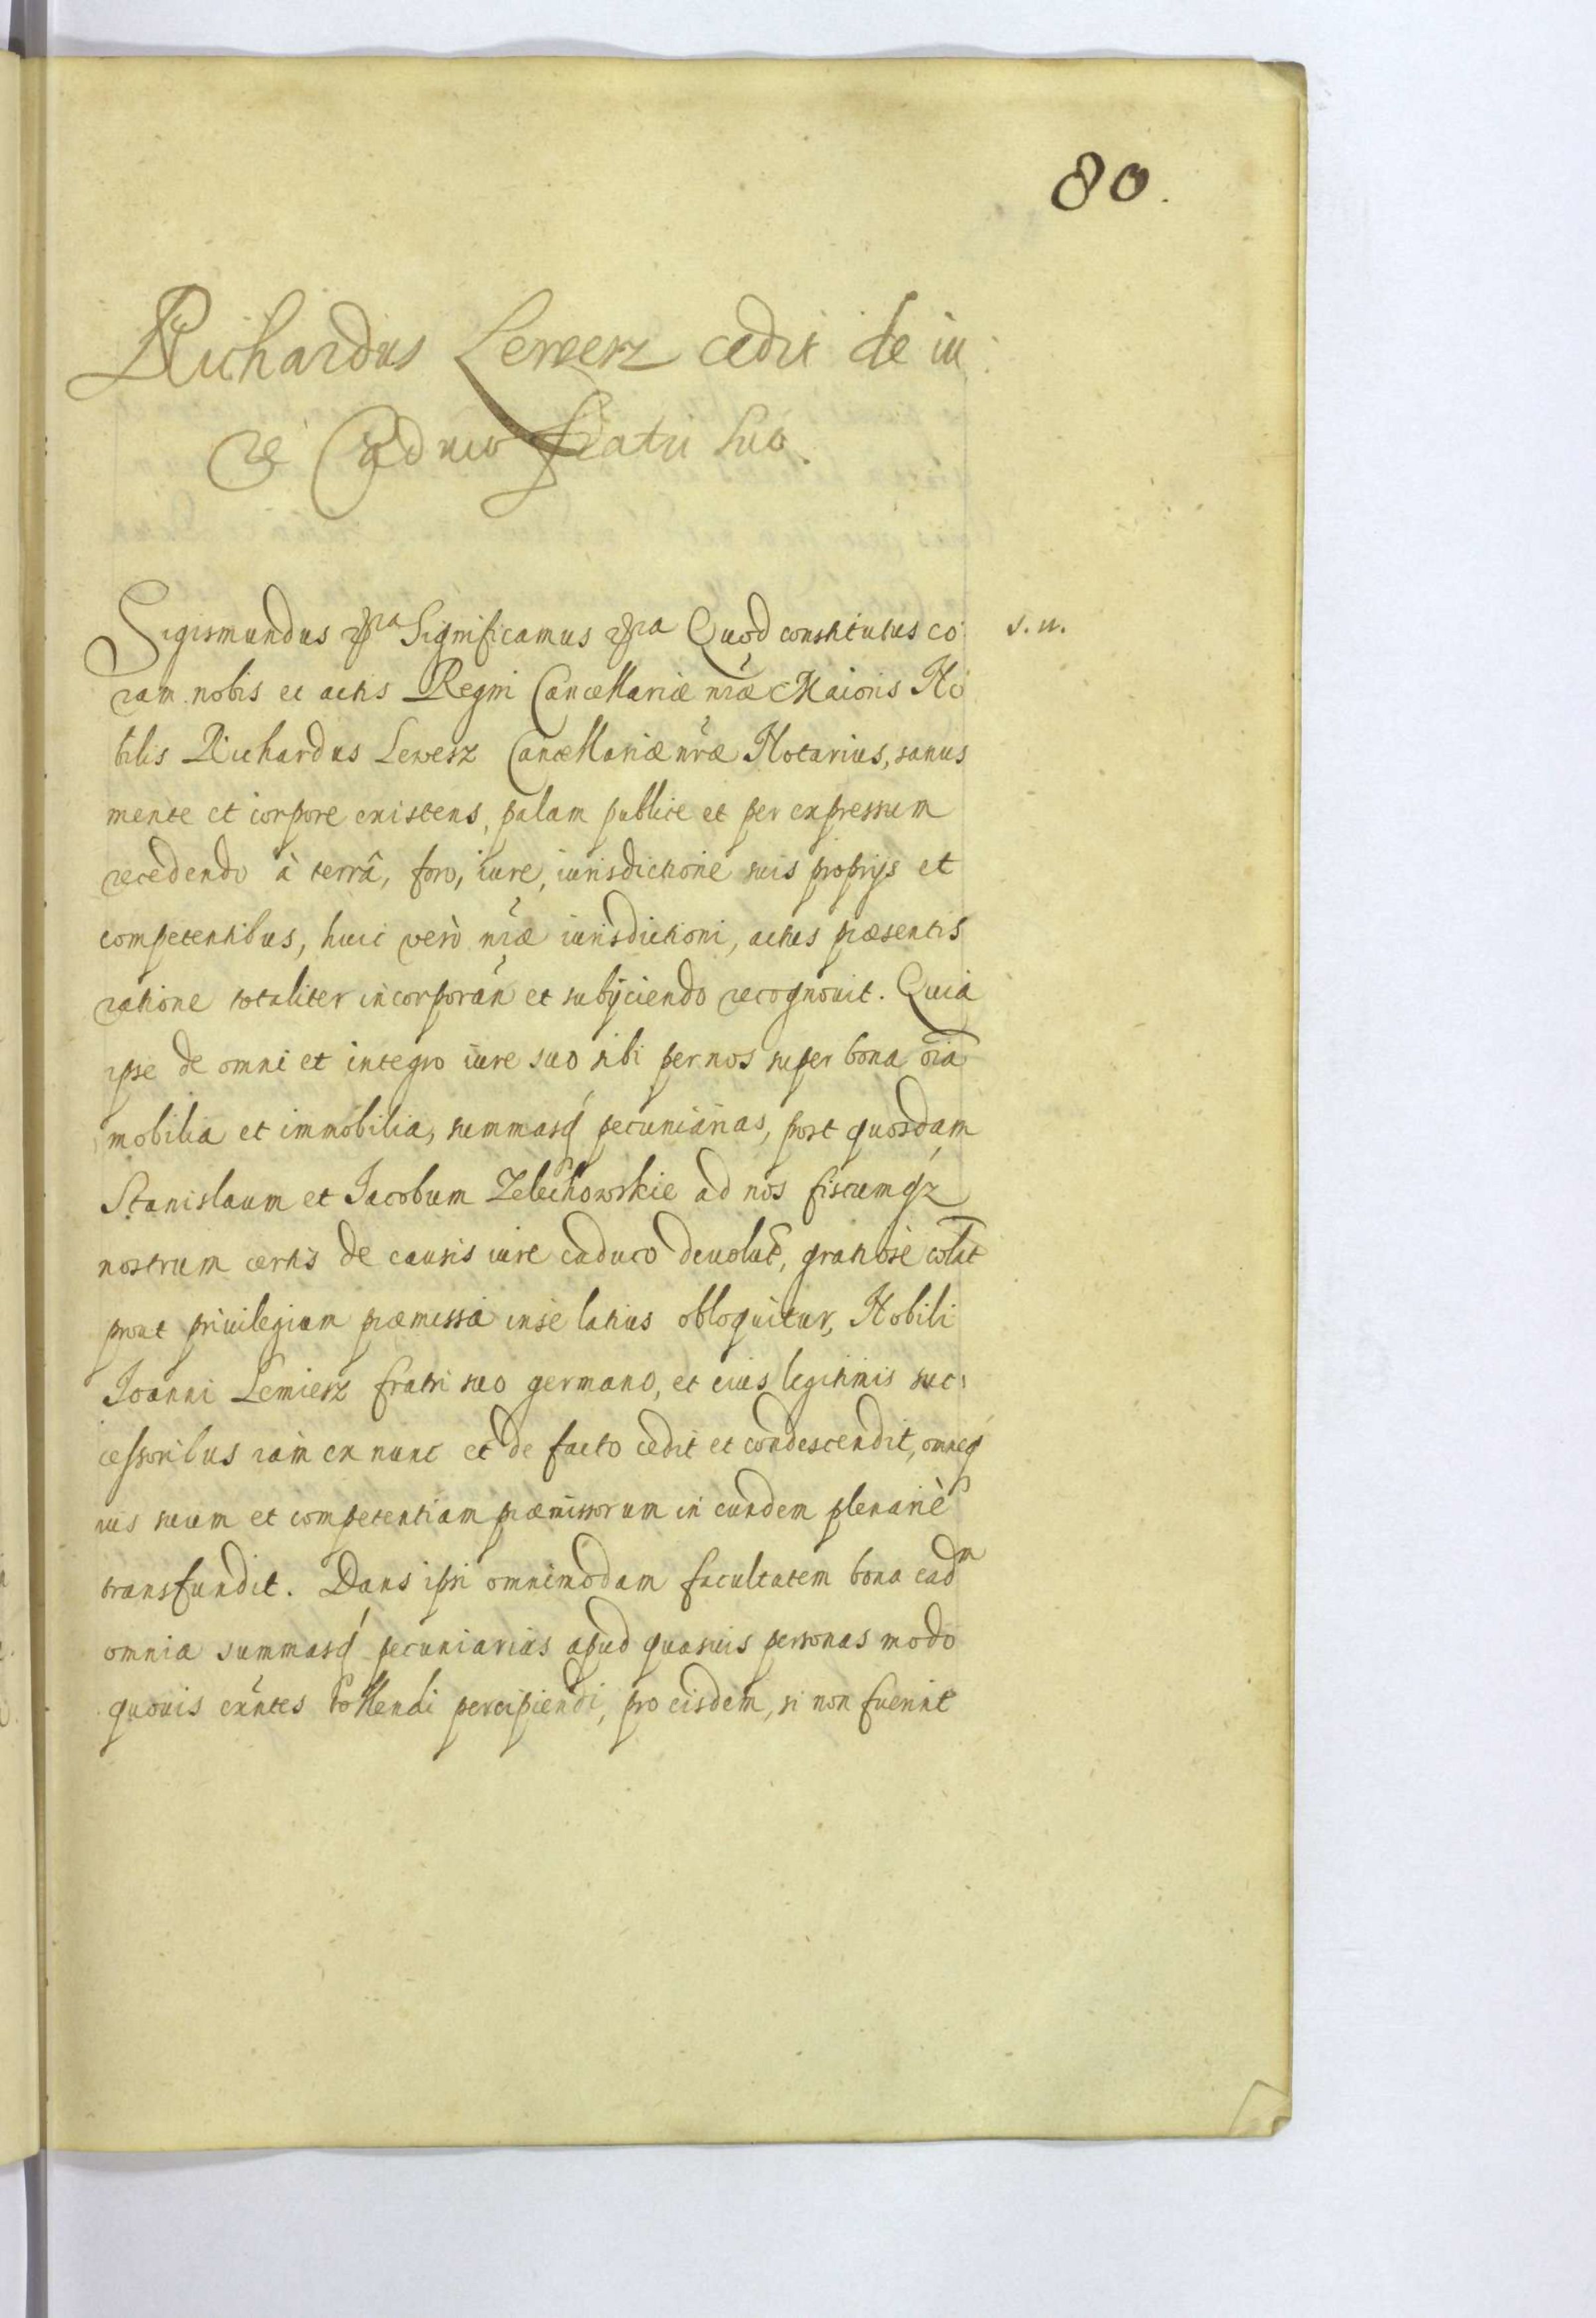 80.
Richardus Lewesz cedit de iu
re Caduco fratri suo.
Sigismundus &ra Significamus &ra Quod constitutus co
s. n.
ram nobis et actis Regni Cancellariæ nr̃æ Maioris No
bilis Richardus Lewesz Cancellariæ nr̃æ Notarius, sanus
mente et corpore existens, palam publice et per expressum
recedendo à terrâ, foro, iure, iurisdictione suis proprijs et
competentibus, huic verò nr̃æ iurisdictioni, actus præsentis
ratione totaliter incorporañ et subijciendo recognovit. Quia
ipse de omni et integro iure suo sibi per nos super bona oĩa
mobilia et immobilia, summasq́ pecuniarias, post quosdam
Stanislaum et Jacobum Zelechowskie ad nos fiscumqz
nostrum certis de causis iure caduco devolut̃, gratiose colat̃
prout privilegium præmissa in se latius obloquitur, Nobili
Joanni Lewiesz fratri suo germano, et eius legitimis suc:
cessoribus iam ex nunc et de facto cedit et condescendit, omneq́
ius suum et competentiam præmissorum in eundem plenariè
transfundit. Dans ipsi omnimodam facultatem bona ead͏ͫ
omnia summasq́ pecuniarias apud quasvis personas modo
quovis exñtes tollendi percipiendi, pro eisdem, si non fuerint